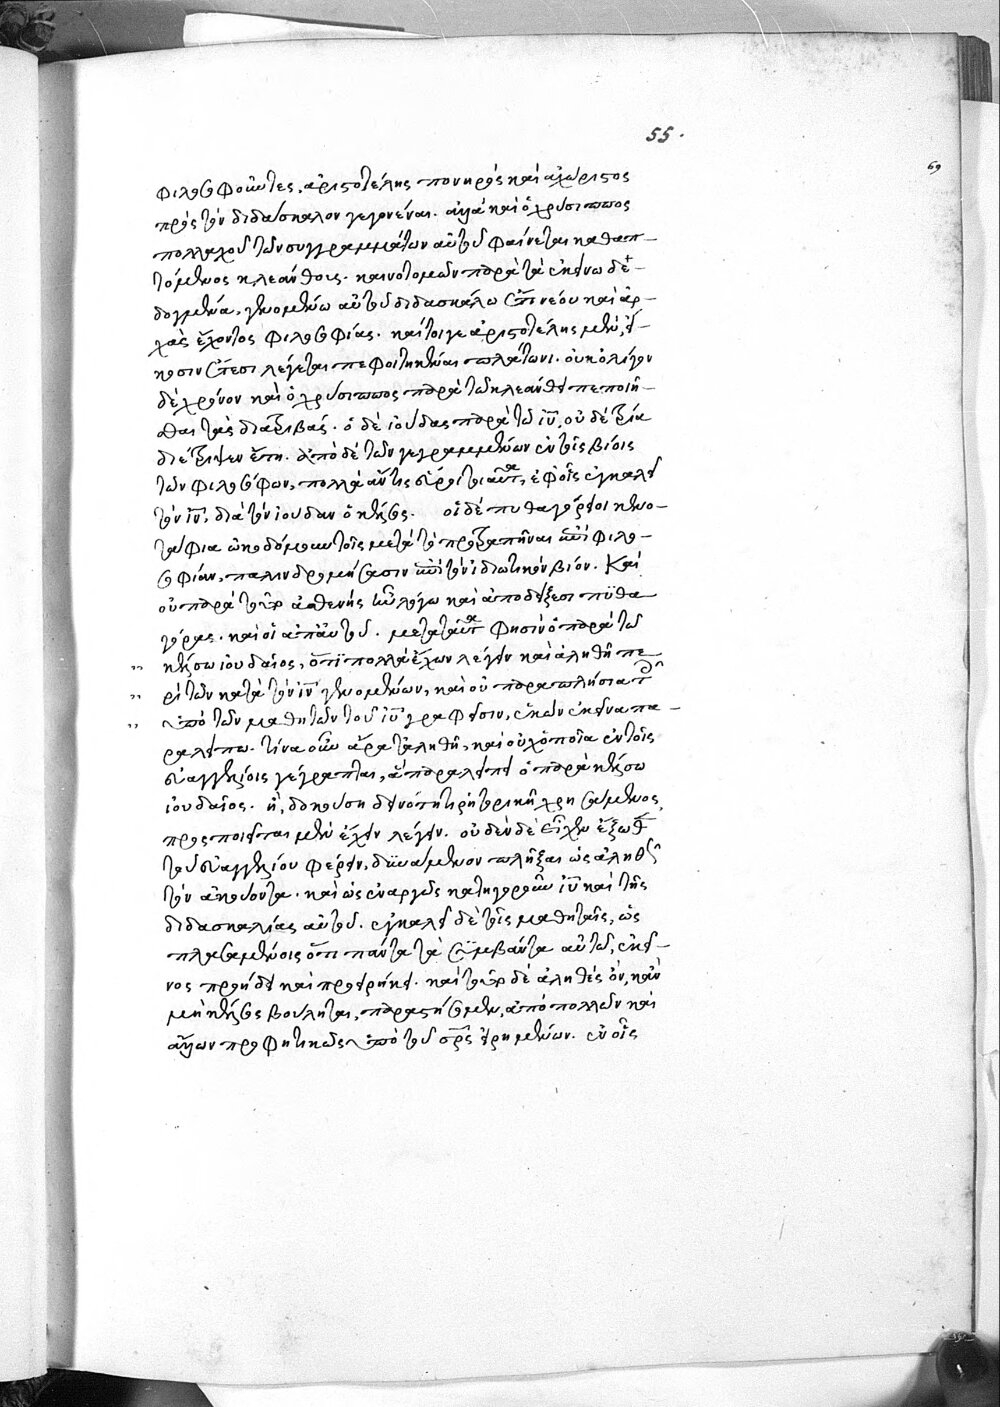 55.
69
φιλοσοφοῦντες, ἀριστοτέλης πονηρὸς καὶ ἀχάριστος
πρὸς τὸν διδάσκαλον γεγονέναι. ἀλλὰ καὶ ὁ χρύσιππος
πολλαχοῦ τῶν συγγραμμάτων αὐτοῦ φαίνεται καθαπ-
τόμενος κλεάνθους. καινοτομῶν παρὰ τὰ ἐκείνω δε-
δογμένα, γενομένω αὐτοῦ διδασκάλω ἔτι νέου καὶ ἀρ-
χὰς ἔχοντος φιλοσοφίας. καίτοιγε ἀριστοτέλης μὲν, εἴ-
κοσιν ἔτεσι λέγεται πεφοιτηκέναι πλάτωνι. οὐκ ὀλίγον
δὲ χρόνον καὶ ὁ χρύσιππος παρὰ τῶ κλεάνθει πεποιῆ-
σθαι τὰς διατριβάς. ὁ δὲ ἰούδας παρὰ τῶ ἰυ, οὐδὲ τρία
διέτριψεν ἔτη. ἀπὸ δὲ τῶν γεγραμμένων ἐν τοῖς βίοις
τῶν φιλοσόφων, πολλὰ ἄν τις εὕροι τοιαῦτα, ἐφ οἷς ἐγκαλεῖ
τὸν ἰν, διὰ τὸν ἰούδαν ὁ κέλσος. οἱ δὲ πυθαγόρειοι κενο-
τάφια ὠκοδόμουν τοῖς μετὰ τὸ προτραπῆναι ἐπὶ φιλο-
σοφίαν, παλινδρομήσασιν ἐπὶ τὸν ἰδιωτικὸν βίον. καὶ
οὐ παρὰ τοῦτο ἀσθενὴς ἦν λόγω καὶ ἀποδείξεσι πυθα
γόρας. καὶ οἱ ἀπ αὐτοῦ. μετὰ ταῦτα φησὶν ὁ παρὰ τῶ
κέλσω ἰουδαῖος, ὅτι πολλὰ ἔχων λέγειν καὶ ἀληθῆ πε
ρὶ τῶν κατὰ τὸν ἰν γενομένων, καὶ οὐ παραπλήσια τοῖς
ὑπὸ τῶν μαθητῶν τοῦ ἰυ γραφεῖσιν, ἑκὼν ἐκεῖνα πα-
ραλείπω. τίνα οὖν ἄρα τἀληθῆ, καὶ οὐχ ὁποῖα ἐν τοῖς
εὐαγγελίοις γέγραπται, ἃ παραλείπει ὁ παρὰ κέλσω
ἰουδαῖος. ἢ, δοκούση δεινότητι ῥητορικῆ χρησάμενος,
προσποιεῖται μὲν ἔχειν λέγειν. οὐδὲν δὲ εἶχεν ἔξωθεν
τοῦ εὐαγγελίου φέρειν, δυνάμενον πλῆξαι ὡς ἀληθὲς
τὸν ἀκούοντα. καὶ ὡς ἐναργῶς κατηγοροῦν ἰυ καὶ τῆς
διδασκαλίας αὐτοῦ. ἐγκαλεῖ δὲ τοῖς μαθηταῖς, ὡς
πλασαμένοις ὅτι πάντα τὰ συμβάντα αὐτῶ, ἐκεῖ-
νος προήδει καὶ προειρήκει. καὶ τοῦτο δὲ ἀληθὲς ὂν, κἂν
μὴ κέλσος βούληται, παραστήσομεν, ἀπὸ πολλῶν καὶ
ἄλλων προφητικῶς ὑπὸ τοῦ σρς εἰρημένων. ἐν οἷς